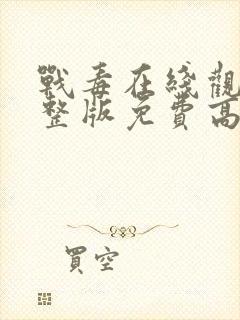 戰毒在綫觀
整版免費高
買空